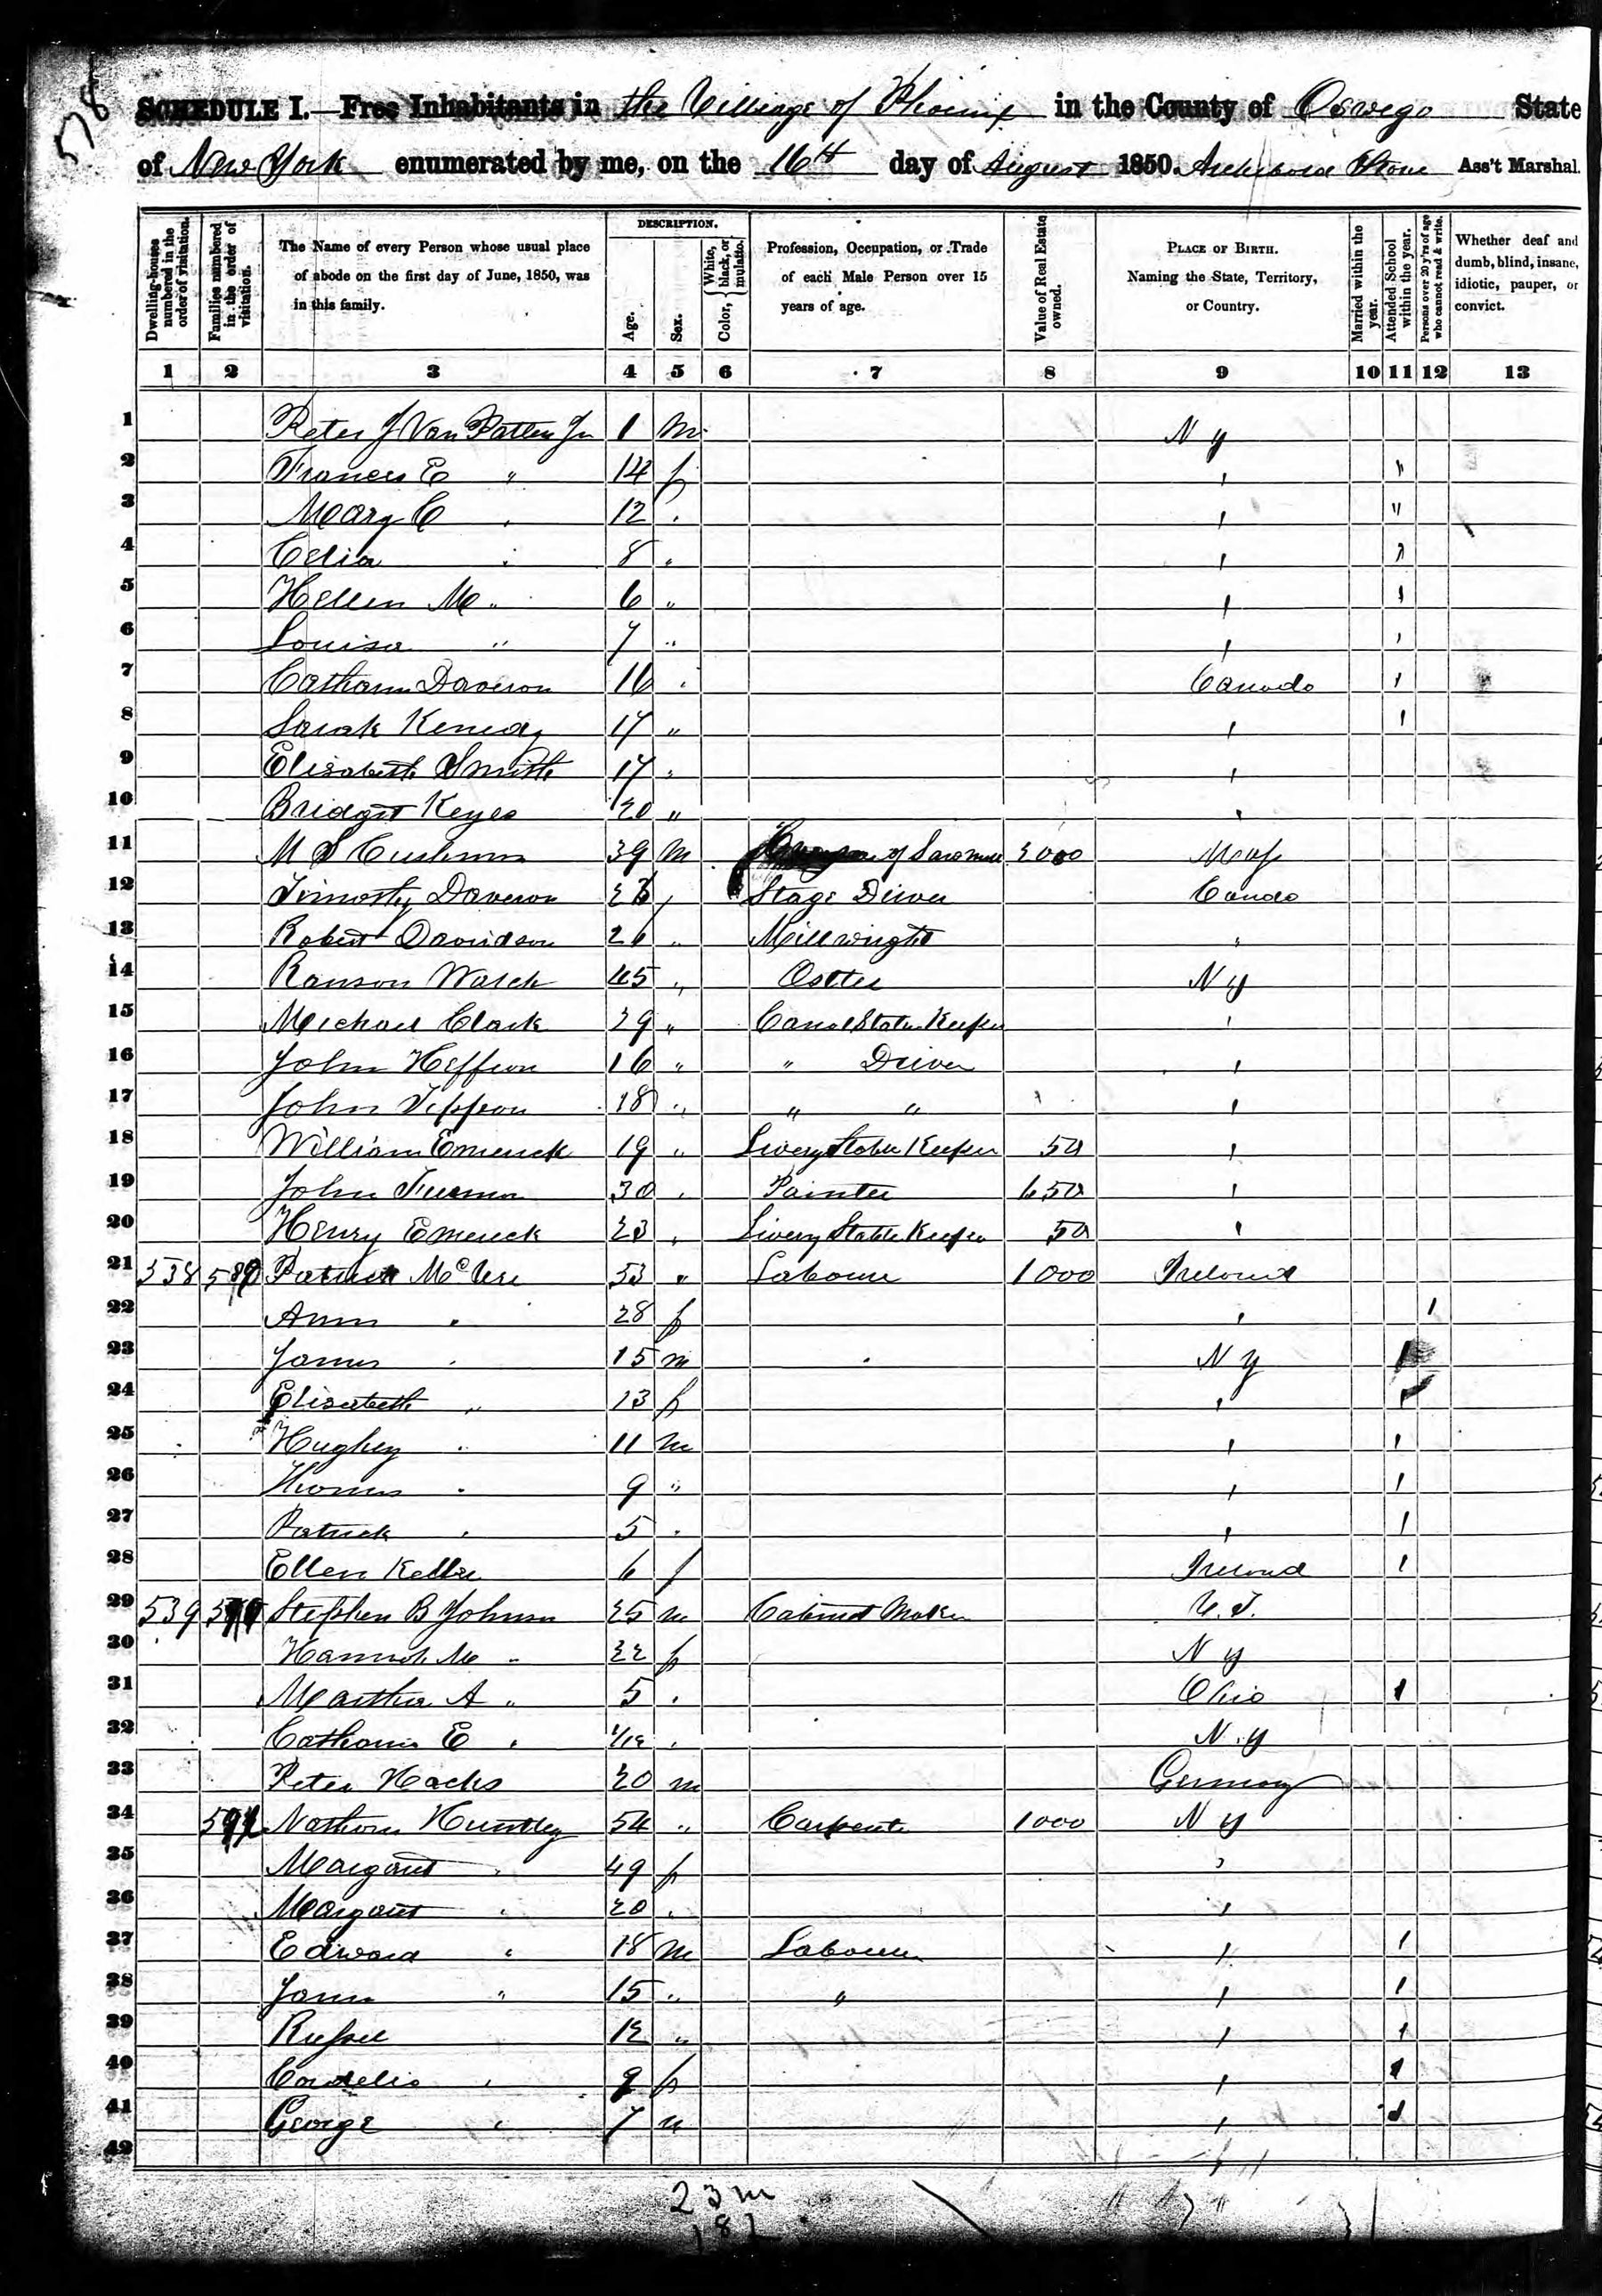 578
SCHEDULE I.—Free Inhabitants in the Village of Phoenix in the County of Oswego State
of New York enumerated by me, on the 16th day of August 1850. Stone Ass't Marshal.
Dwelling-houses numbered in the order of visitation.
Families numbered in the order of visitation.
The Name of every Person whose usual place of abode on the first day of June, 1850, was in this family.
DESCRIPTION.
Age.
Sex.
Color, White, black, or mulatto.
Profession, Occupation, or Trade of each Male Person over 15 years of age.
Value of Real Estate owned.
PLACE OF BIRTH. Naming the State, Territory, or Country.
Married within the year.
Attended School within the year.
Persons over 20 y'rs of age who cannot read & write.
Whether deaf and dumb, blind, insane, idiotic, pauper, or convict.
1 2 3 4 5 6 7 8 9 10 11 12 13
1 Peter J Van Patten Jr 1 m N Y
2 Frances E " 14 f " 1
3 Mary C " 12 " " "
4 Celia " 8 " " 1
5 Hellen M " 6 " " 1
6 Louisa " 7 " " 1
7 Catharin Daveron 16 " Canada 1
8 Sarah Kenedy 17 " " 1
9 Elisabeth Smith 17 " "
10 Bridget Keyes 20 " "
11 M S Cushman 39 m of Sawmill 2000 Mass
12 Timothy Daveron " Stage Driver Canada
13 Robert Davidson 26 " Millwright "
14 Ranson Walch 45 " Ostler N Y
15 Michael Clark 29 " Canal Keeper "
16 John Heffron 16 " " Driver "
17 John 18 " " " "
18 William Emerick 19 " Livery Stable Keeper 50 "
19 John 30 " Painter 650 "
20 Henry Emerick 23 " Livery Stable Keeper 50 "
21 538 Patrick 53 " Labourer 1000 Ireland
22 Ann " 28 f " 1
23 James " 15 m N Y 1
24 Elisabeth " 13 f " 1
25 Hughey " 11 m " 1
26 Thomas " 9 " " 1
27 Patrick " 5 " " 1
28 Ellen 6 f Ireland 1
29 539 Stephen B Johnson 25 m Cabinet Maker
30 Hannah M " 22 f N Y
31 Martha A " 5 " Ohio 1
32 Catharin E " " N Y
33 Peter Hacks 20 m Germany
34 Nathan Huntley 54 " Carpenter 1000 N Y
35 Margaret " 49 f "
36 Margaret " 20 " "
37 Edward " 18 m Labourer " 1
38 James " 15 " " " 1
39 Russel 12 " " 1
40 Cordelia " 9 f " 1
41 George " 7 m " 1
42
23 m